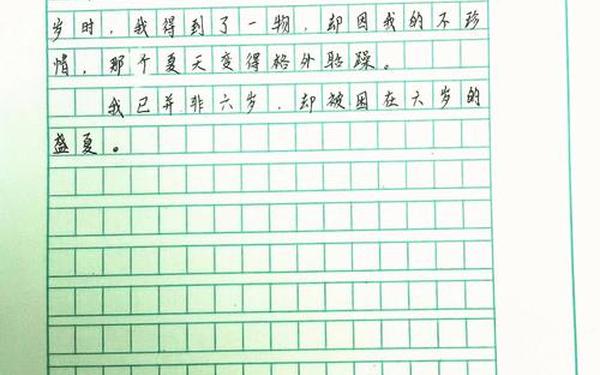 岁时，我得到了一物，却因我的不珍
惜，那个夏天变得格外聒躁。
我已并非六岁，却被困在六岁的
盛夏。